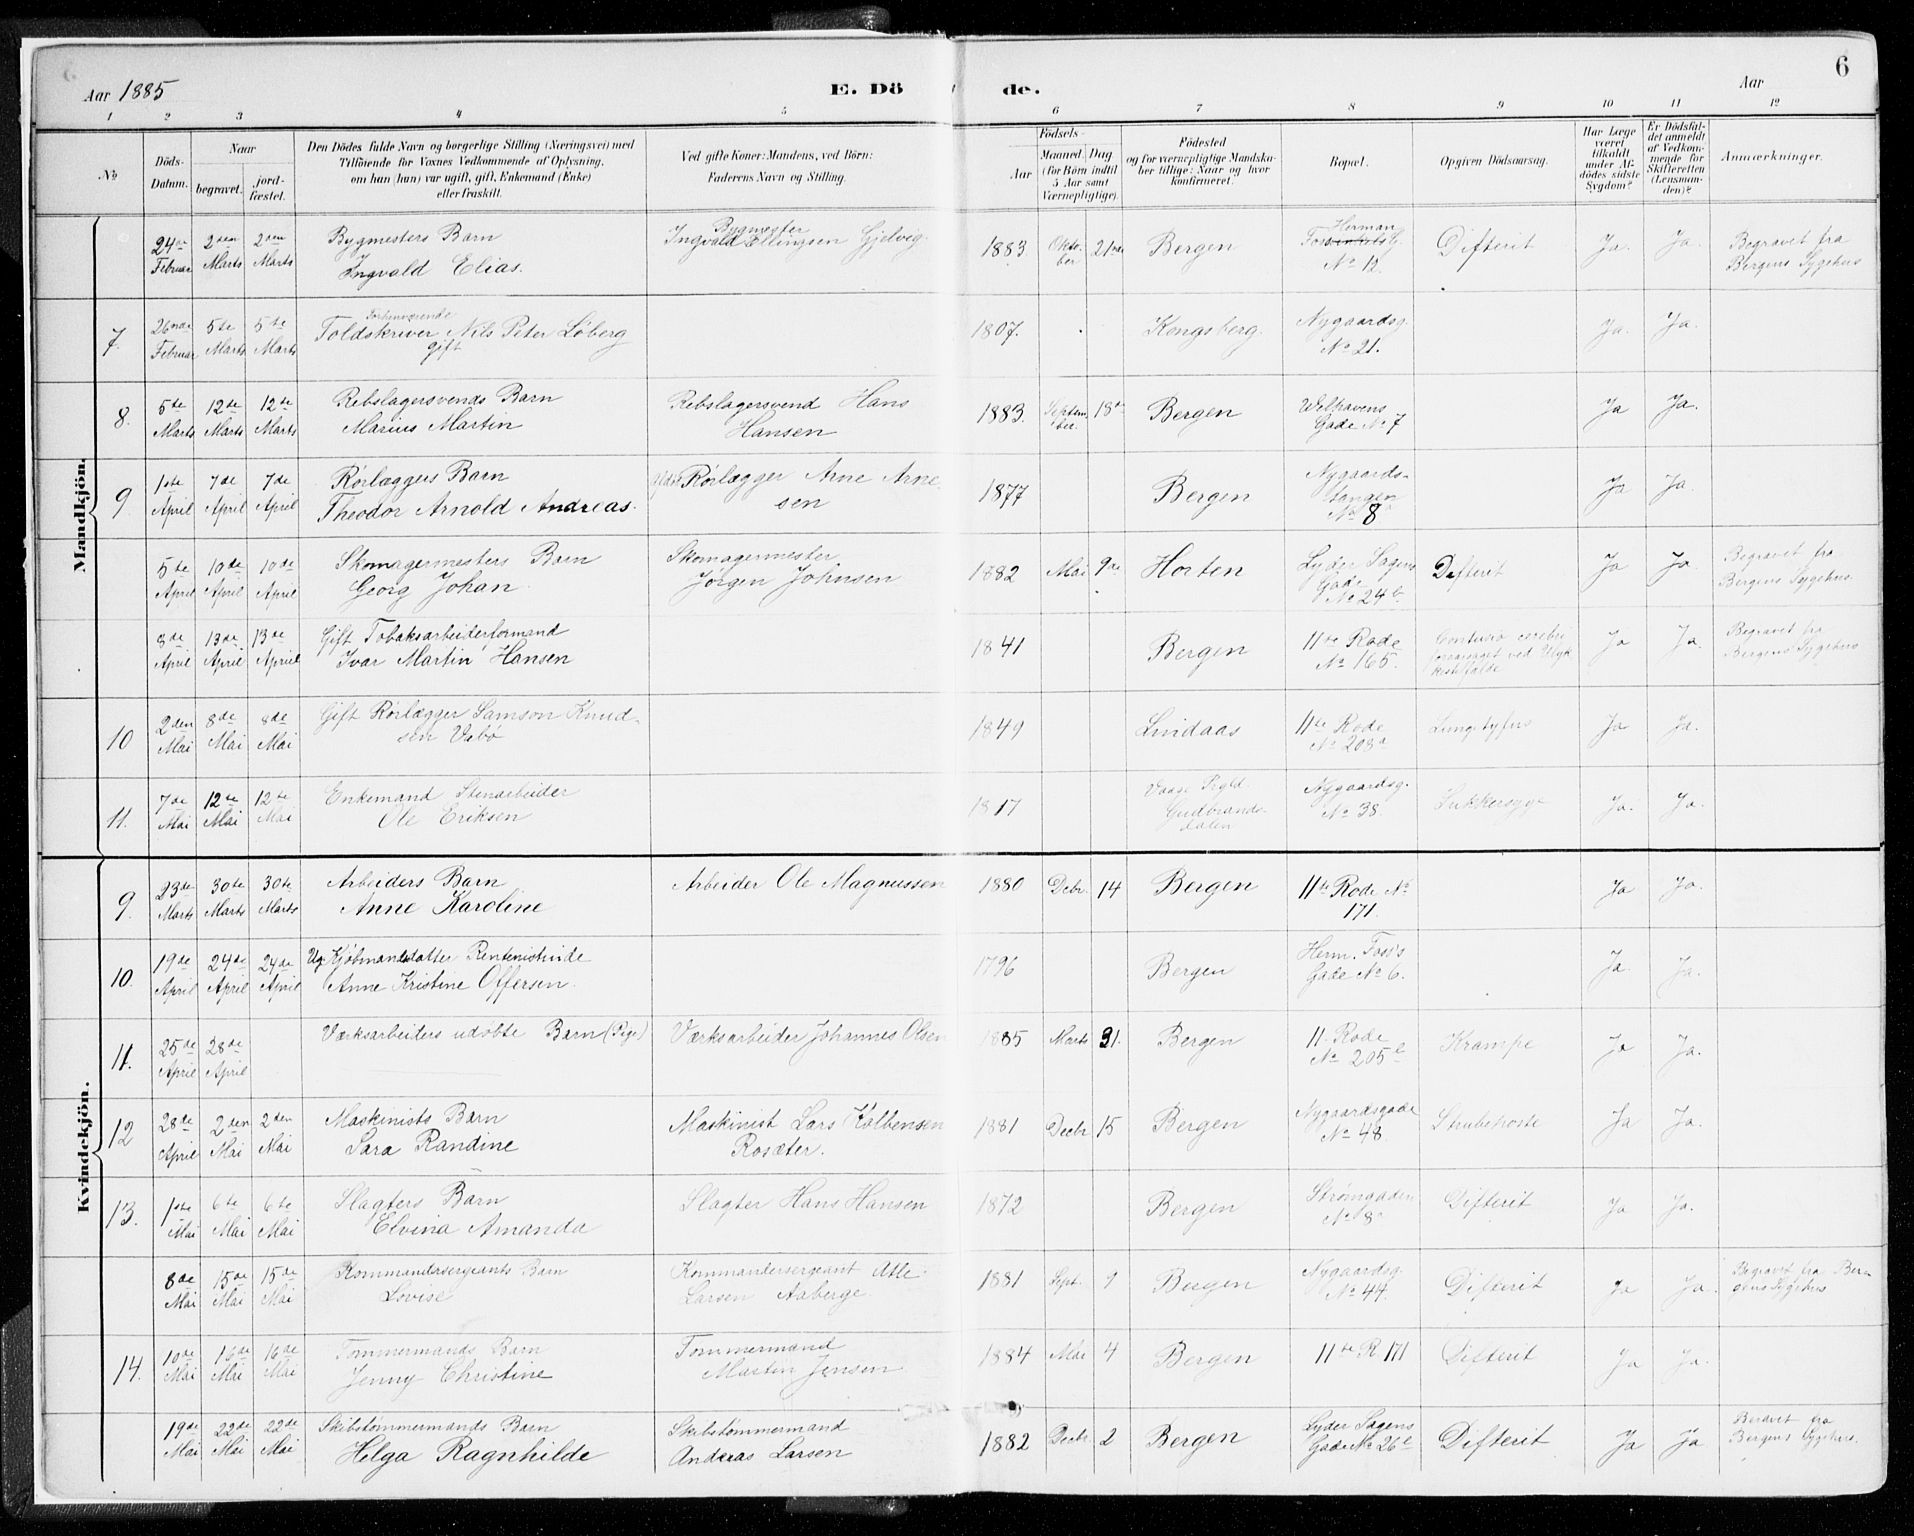 6
Aar 1885 E. Dö de. Aar
1 2 3 4 5 6 7 8 9 10 11 12
No
Döds-Datum.
Naar
begravet.
jord-fæstet.
Den Dödes fulde Navn og borgerlige Stilling (Næringsvei) med
Tilföiende for Voxnes Vedkommende af Oplysning,
om han (hun) var ugift, gift, Enkemand (Enke)
eller fraskilt.
Ved gifte Koner: Mandens, ved Börn:
Faderens Navn og Stilling.
Födsels-
Aar
Maaned. Dag
(for Börn indtil
5 Aar samt
Værnepligtige).
Födested
og for værnepligtige Mandska-
ber tillige: Naar og hvor
konfirmeret.
Bopæl.
Opgiven Dödsaarsag.
Har Læge
været
tilkaldt
under Af-
dödes sidste
Sygdom?
Er Dödsfal-
det anmeldt
af Vedkom-
mende for
Skifteretten
(Lensman-
den)?
Anmærkninger.
Mandkjön.
24de Februar 2den Marts 2den Marts Bygmesters Barn Ingvald Elias. Bygmester Ingvald Ellingsen Gjelvig. 1883 Oktober 21de Bergen Herman G. No 12. Difterit Ja. Ja. Begravet fra Bergens Sygehus
7. 26nde Februar 5te Marts 5te Marts Forhenværende Toldskriver Nils Peter Löberg gift 1807. Kongsberg. Nygaardsg. No 21. Ja. Ja.
8. 5te Marts 12te Marts 12te Marts Rebslagersvends Barn Marius Martin Rebslagersvend Hans Hansen 1883. September 18de Bergen Welhavens Gade No 7 Ja Ja.
9 1ste April 7de April 7de April Rörlæggers Barn Theodor Arnold Andreas. Rörlægger Arne Arnesen 1877 Bergen Nygaardstangen No 8 Ja Ja.
5te April 10de April 10de April Skomagermesters Barn Georg Johan. Skomagermester Jörgen Johnsen 1882 Mai 9de Horten Lyder Sagens Gade No 24b Difterit Ja Ja. Begravet fra Bergens Sygehus.
8de April 13de April 13de April Gift Tobaksarbeiderformand Ivar Martin Hansen 1841 Bergen 11te Rode No 165. Contusio cerebri ved Ulykkestilfælde Ja Ja. Begravet fra Bergens Sygehus
10 2den Mai 8de Mai 8de Mai Gift Rörlægger Samson Knudsen Vabö 1849 Lindaas 11te Rode No 203a Lungetyfus Ja Ja.
11. 7de Mai 12te Mai 12te Mai Enkemand Stenarbeider Ole Eriksen 1817 Vaage Prgld. Gudbrandsdalen Nygaardsg. No 38. Sukkersyge Ja. Ja.
Kvindekjön.
9 23de Marts 30te Marts 30te Marts Arbeiders Barn Anne Karoline Arbeider Ole Magnussen 1880 Decbr. 14 Bergen 11te Rode No 171. Ja Ja.
10. 19de April 24de April 24de April Ug. Kjöbmandsdatter Rentenistinde Anne Kristine Offersen. 1796 Bergen Herm. Foss's Gade No 6. Ja Ja.
11. 25de April 28de April Værksarbeiders udöbte Barn (Pige) Værksarbeider Johannes Olsen 1885 Marts 31. Bergen 11. Rode No 205 Krampe Ja Ja.
12 28de April 2den Mai 2den Mai Maskinists Barn Sara Randine Maskinist Lars Kolbensen Rosæter. 1881 Decbr 15 Bergen Nygaardsgade No 48. Strubehoste Ja Ja.
13. 1ste Mai 6te Mai 6te Mai Slagters Barn Elvina Amanda Slagter Hans Hansen 1872 Bergen Strömgaden No 8a Difterit Ja Ja.
8de Mai 15de Mai 15de Mai Kommandersergeants Barn Lovise Kommandersergeant Atle Larsen Aaberge 1881 Sept. 9 Bergen Nygaardsg. No 44. Difterit Ja Ja. Begravet fra Bergens Sygehus
14. 10de Mai 16de Mai 16de Mai Tommermands Barn Jenny Christine Tommermand Martin Jensen 1884 Mai 4 Bergen 11te R. 171 Difterit Ja Ja.
19de Mai 22de Mai 22de Mai Skibstömmermands Barn Helga Ragnhilde Skibstömmermand Andreas Larsen 1882 Decbr 2 Bergen Lyder Sagens Gade No 26 Difterit Ja Ja Beravet fra Bergens Sygehus.